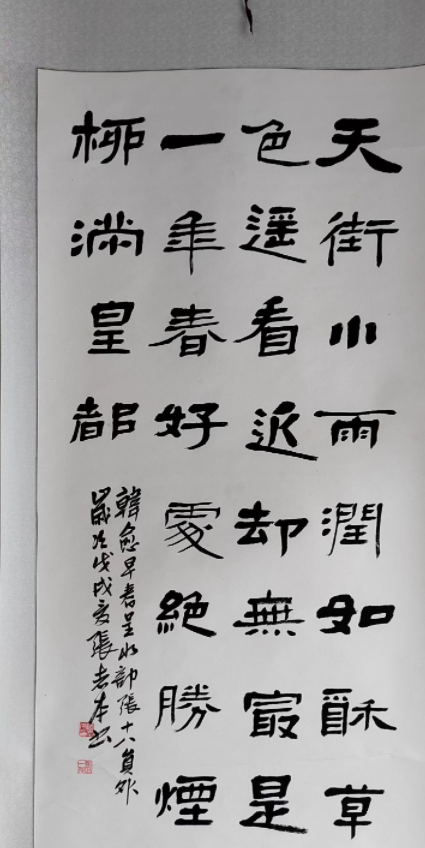 天街小雨潤如酥草
色遥看近却無最是
一年春好處絕勝煙
柳滿皇都
韓愈早春呈水部張十八員外
歲次戊戌夏張老本書